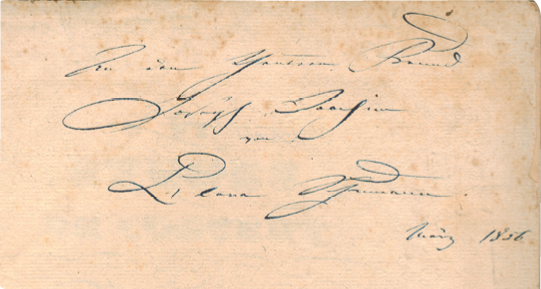 An den Freund
Joseph Joachim
von
Clara Schumann.
März 1856